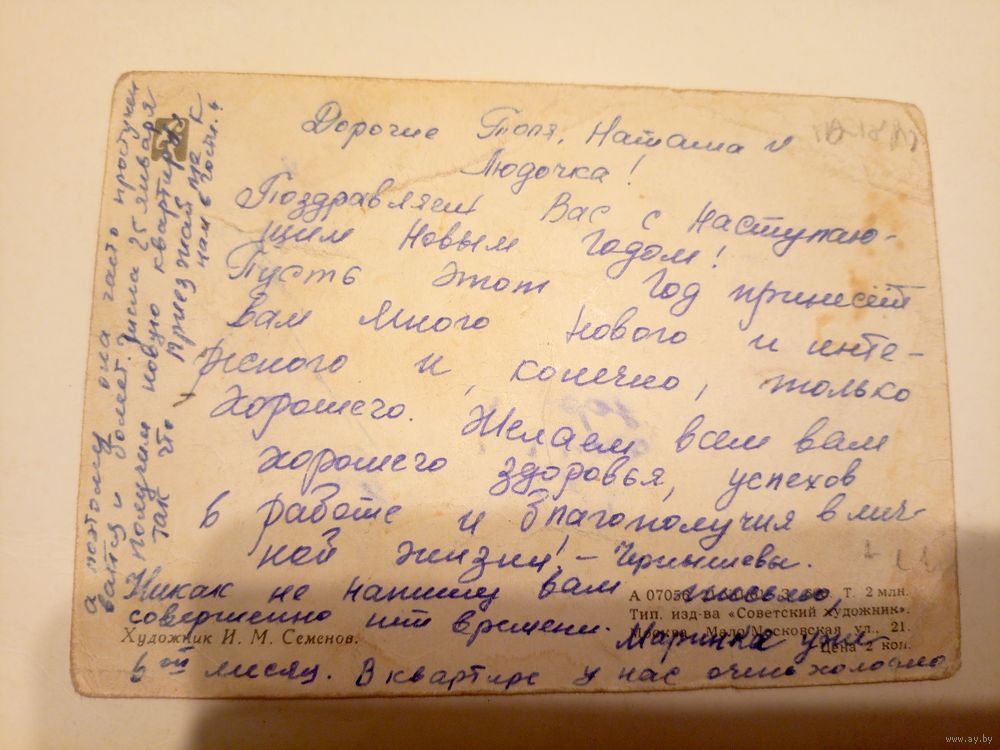 Дорогие Толя, Наташа и
Людочка!
Поздравляем Вас с Наступаю-
щим Новым Годом!
Пусть этот Год принесёт
Вам много нового и инте-
ресного и, конечно, только
хорошего. Желаем всем вам
хорошего здоровья, успехов
в работе и благополучия в лич-
ной жизни! – Чернышевы.
Никак не напишу вам письмо
совершенно нет времени. Маринке уже
6ой месяц. В квартире у нас очень холодно
а потому она часто простужи
вается и болеет. Числа 25 января
получим новую квартиру
так что приезжайте к
нам в гости.
А 07056 Т. 2 млн.
Тип. изд-ва «Советский художник».
Москва, Мало-Московская ул., 21.
Цена 2 коп.
Художник И. М. Семенов.
www.ay.by